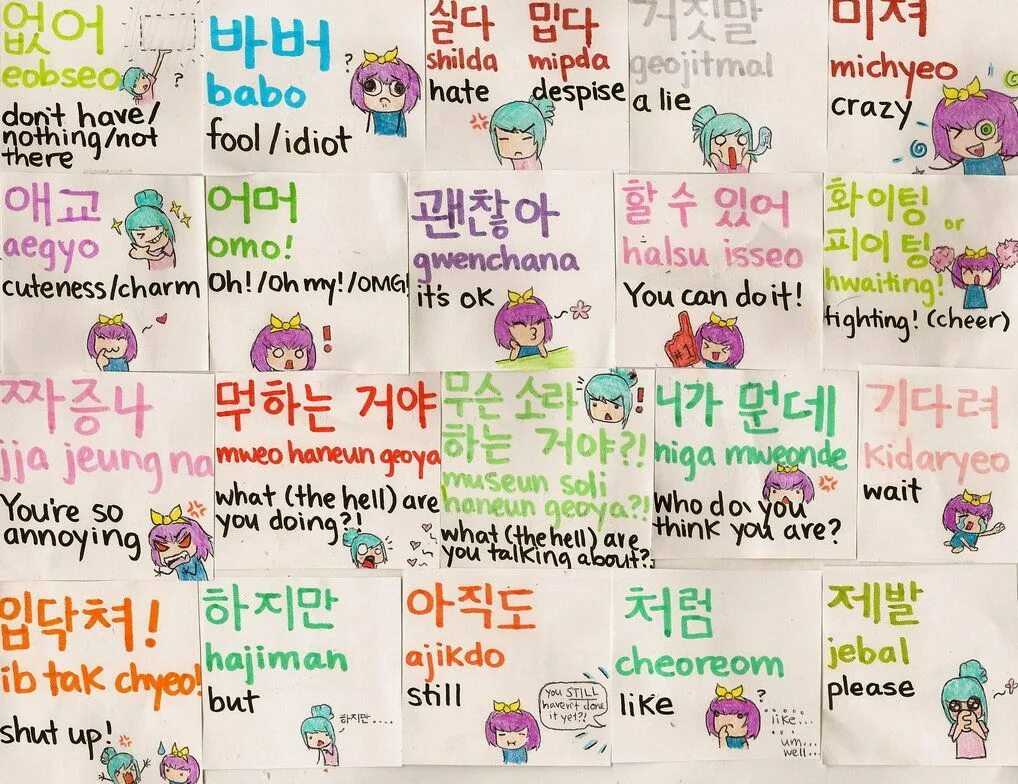 없어
eobseo
?
don't have/
nothing/not
there
바버
babo
?
fool/idiot
싫다 밉다
shilda mipda
hate despise
거짓말
geojitmal
a lie
미쳐
michyeo
crazy
애교
aegyo
cuteness/charm
어머
omo!
Oh!/Oh my!/OMG!
!
괜찮아
gwenchana
it's ok
할 수 있어
halsu isseo
You can do it!
#1
화이팅
or
피이팅
hwaiting!
fighting! (cheer)
짜증나
jja jeung na
You're so
annoying
뭐하는 거야
mweo haneun geoya
what (the hell) are
you doing?!
무슨 소라
!
하는 거야?!
museun soli
haneun geoya?!
what (the hell) are
you talking about?!
니가 뭔데
niga mweonde
Who do you
think you are?
기다려
kidaryeo
wait
입닥쳐!
ib tak chyeo!
shut up!
하지만
hajiman
but
하지만....
아직도
ajikdo
still
you STILL
haven't done
it yet?!
처럼
cheoreom
like
?
like...
um...
well...
제발
jebal
please